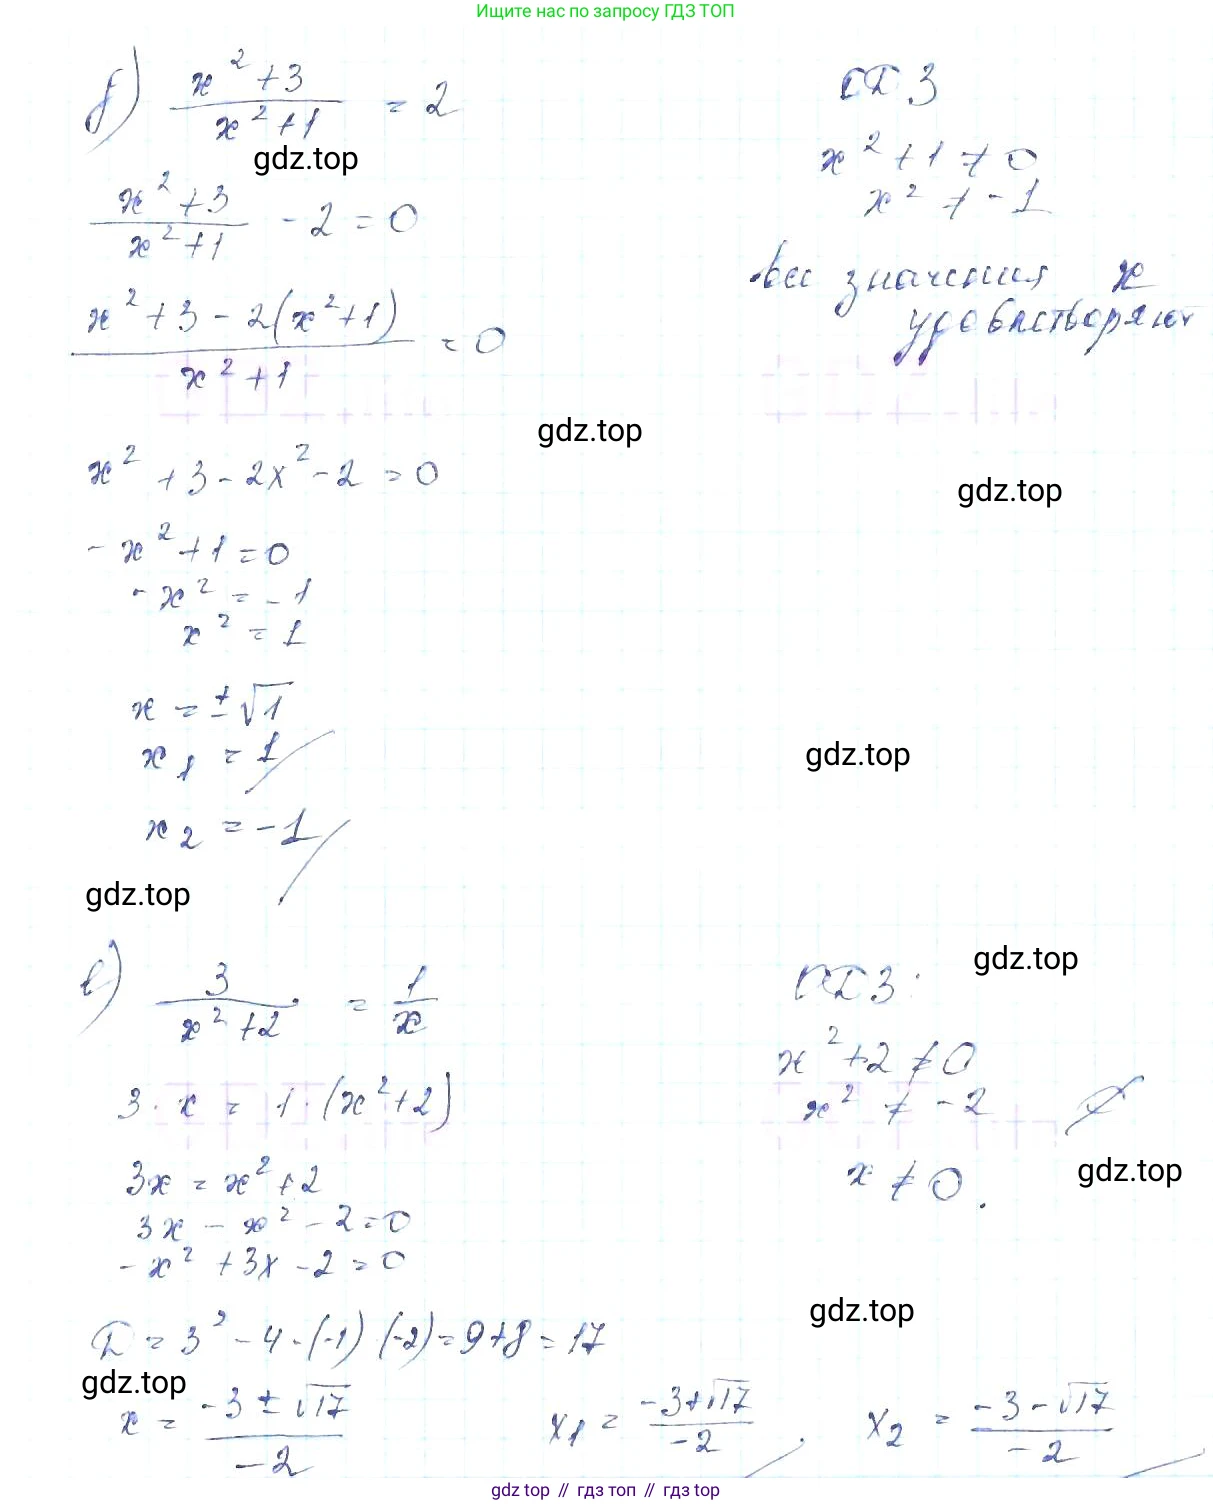 Ищите нас по запросу ГДЗ ТОП
б) (x² + 3)/(x² + 1) = 2
ОДЗ
gdz.top
x² + 1 ≠ 0
(x² + 3)/(x² + 1) - 2 = 0
x² ≠ -1
все значения x
удовлетворяют
(x² + 3 - 2(x² + 1))/(x² + 1) = 0
gdz.top
x² + 3 - 2x² - 2 = 0
gdz.top
- x² + 1 = 0
- x² = - 1
x² = 1
x = ±√1
x₁ = 1
gdz.top
x₂ = -1
gdz.top
в) 3/(x² + 2) = 1/x
gdz.top
ОДЗ:
x² + 2 ≠ 0
3 · x = 1 · (x² + 2)
x² ≠ -2
gdz.top
3x = x² + 2
x ≠ 0.
3x - x² - 2 = 0
- x² + 3x - 2 = 0
gdz.top
D = 3² - 4 · (-1) · (-2) = 9 + 8 = 17
gdz.top
x = (-3 ± √17)/(-2)
x₁ = (-3 + √17)/(-2) . x₂ = (-3 - √17)/(-2)
gdz top // гдз топ // gdz top